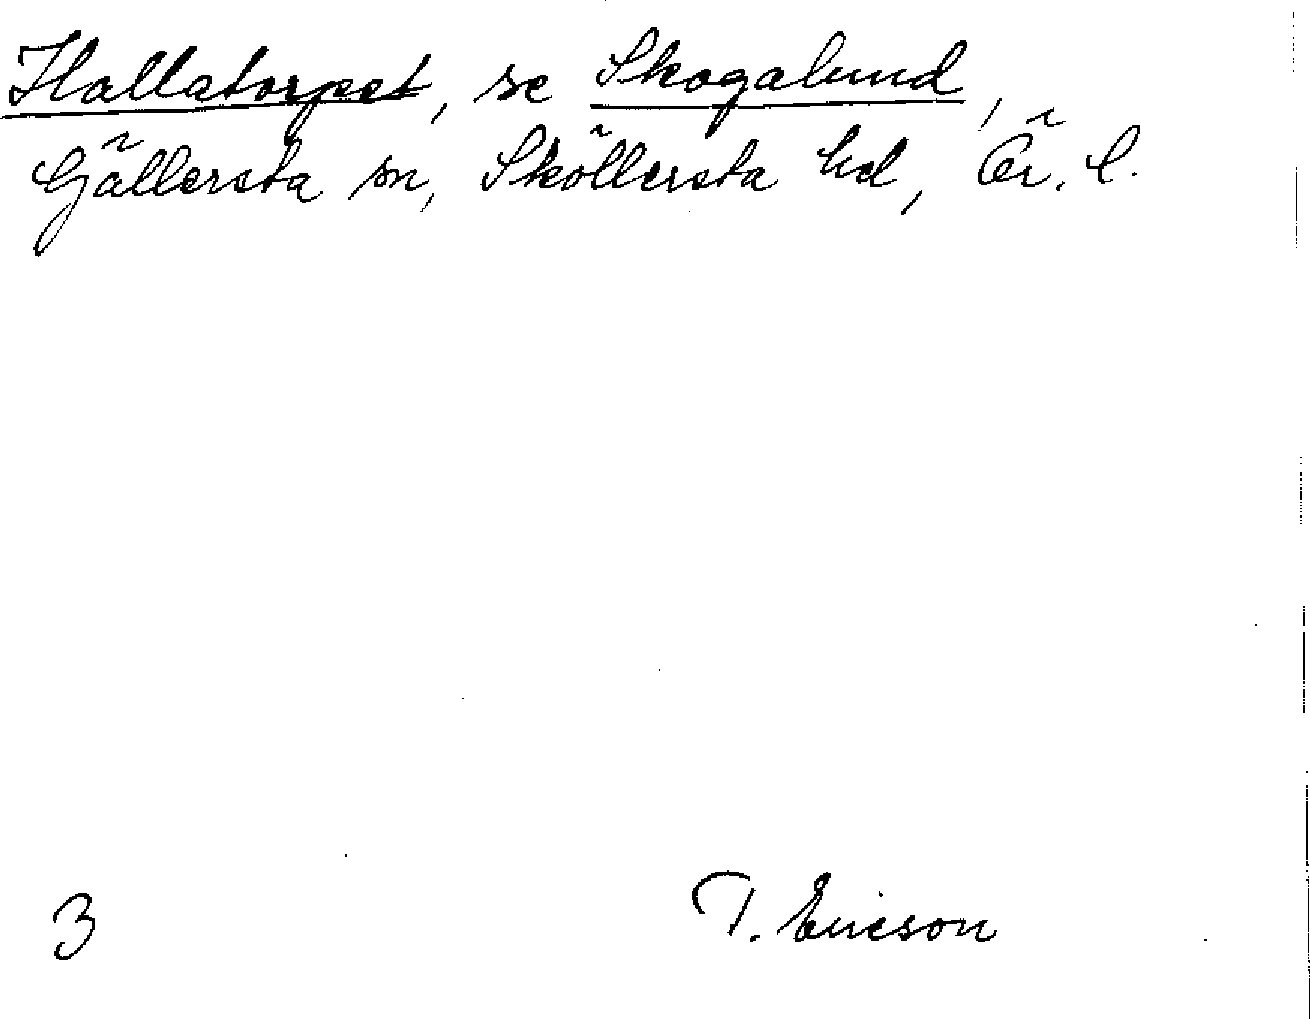 Hallatorpet, se Skogalund,
Gällersta sn, Sköllersta hd, Ör. l.
3
T. Ericson